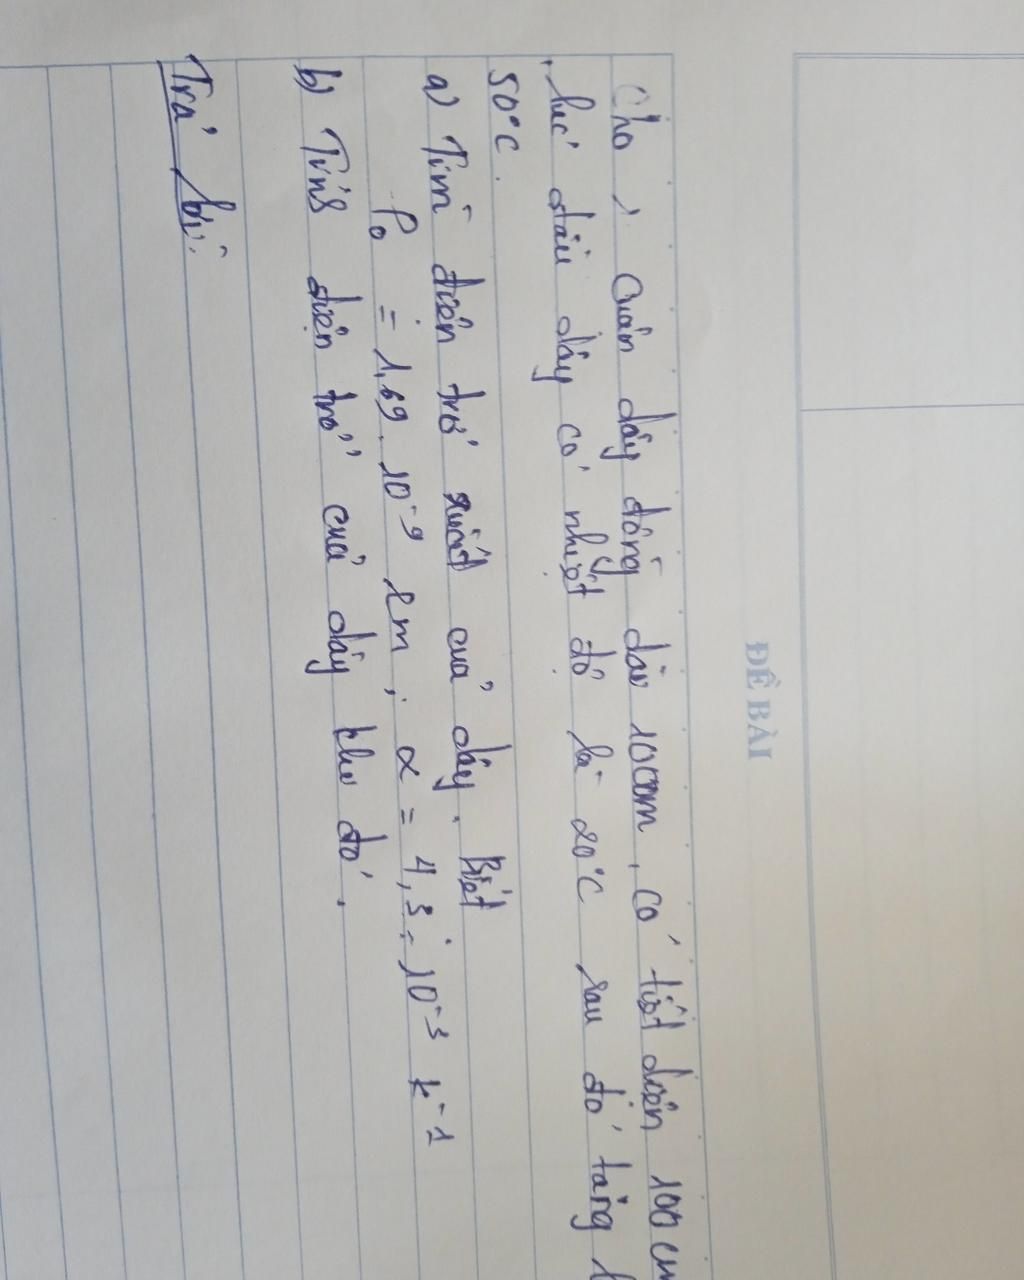 ĐỀ BÀI
Cho 1 cuân dây đông dài 100cm, có tiết diên 100 cm
lúc đầu dây có nhiệt độ là 20°C sau đó tăng l
50°C.
a) Tìm điên trở suất của dây. Biết
ρ₀ = 1,69.10⁻⁹ Ωm, α = 4,3.10⁻³ k⁻¹
b) Tính điện trở của dây khi đó.
Trả lời: